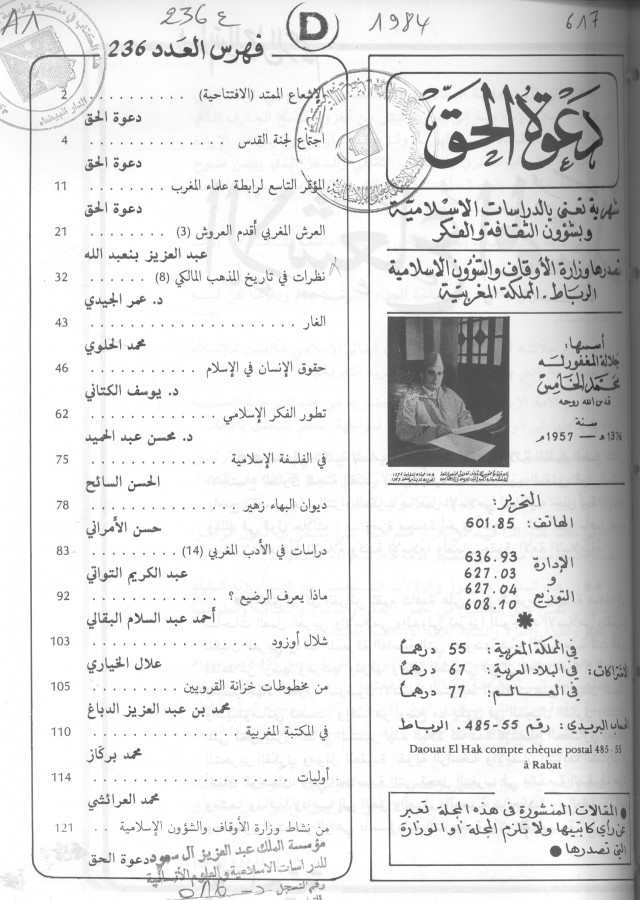 A1
236 ع
D
1984
617
دعوة الحق
شهرية تعنى بالدراسات الاسلامية
وبشؤون الثقافة والفكر
تصدرها وزارة الأوقاف والشؤون الاسلامية
الرباط . المملكة المغربية
أسسها:
جلالة المغفور له
محمد الخامس
قدس الله روحه
سنة
1376 هـ — 1957 م
التحرير:
الهاتف: 601.85
الإدارة
و
التوزيع
636.93
627.03
627.04
608.10
الاشتراكات:
في المملكة المغربية: 55 درهماً
في البلاد العربية: 67 درهماً
في العـــالم: 77 درهماً
الحساب البريدي: رقم 55-485 . الرباط
Daouat El Hak compte chèque postal 485-55
à Rabat
● المقالات المنشورة في هذه المجلة تعبر
عن رأي كاتبيها ولا تلزم المجلة أو الوزارة
التي تصدرها ●
فهرس العدد 236
الإشعاع الممتد (الافتتاحية) . . . . . . . . . . 2
دعوة الحق
اجتماع لجنة القدس . . . . . . . . . . . . . . 4
دعوة الحق
المؤتمر التاسع لرابطة علماء المغرب . . . . . . . . 11
دعوة الحق
العرش المغربي أقدم العروش (3) . . . . . . . . 21
عبد العزيز بنعبد الله
نظرات في تاريخ المذهب المالكي (8) . . . . . . 32
د. عمر الجيدي
الغار . . . . . . . . . . . . . . . . . . 43
محمد الحلوي
حقوق الإنسان في الإسلام . . . . . . . . . . . 46
د. يوسف الكتاني
تطور الفكر الإسلامي . . . . . . . . . . . . 62
د. محسن عبد الحميد
في الفلسفة الإسلامية . . . . . . . . . . . . 75
الحسن السائح
ديوان البهاء زهير . . . . . . . . . . . . . 78
حسن الأمراني
دراسات في الأدب المغربي (14) . . . . . . . . . 83
عبد الكريم التواتي
ماذا يعرف الرضيع ؟ . . . . . . . . . . . . 92
أحمد عبد السلام البقالي
شلال أوزود . . . . . . . . . . . . . . . 103
علال الخياري
من مخطوطات خزانة القرويين . . . . . . . . . 105
محمد بن عبد العزيز الدباغ
في المكتبة المغربية . . . . . . . . . . . . . 110
محمد بركاز
أوليات . . . . . . . . . . . . . . . . . 114
محمد العرائشي
من نشاط وزارة الأوقاف والشؤون الإسلامية . . 121
دعوة الحق
مؤسسة الملك عبد العزيز آل سعود
للدراسات الاسلامية والعلوم الانسانية
رقم التسجيل